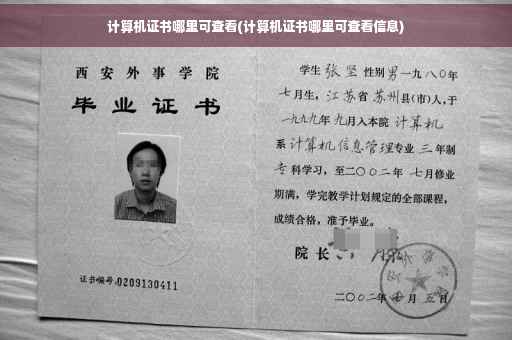 计算机证书哪里可查看(计算机证书哪里可查看信息)
西安外事学院
毕业证书
证书编号:0209130411
学生 张坚 性别 男 一九八〇年
七月生，江苏省 苏州县(市)人，于
一九九九年 九月入本院 计算机
系 计算机信息管理专业 三 年制
专科学习，至二〇〇二年 七月修业
期满，学完教学计划规定的全部课程，
成绩合格，准予毕业。
院长
二〇〇二年 月 五日